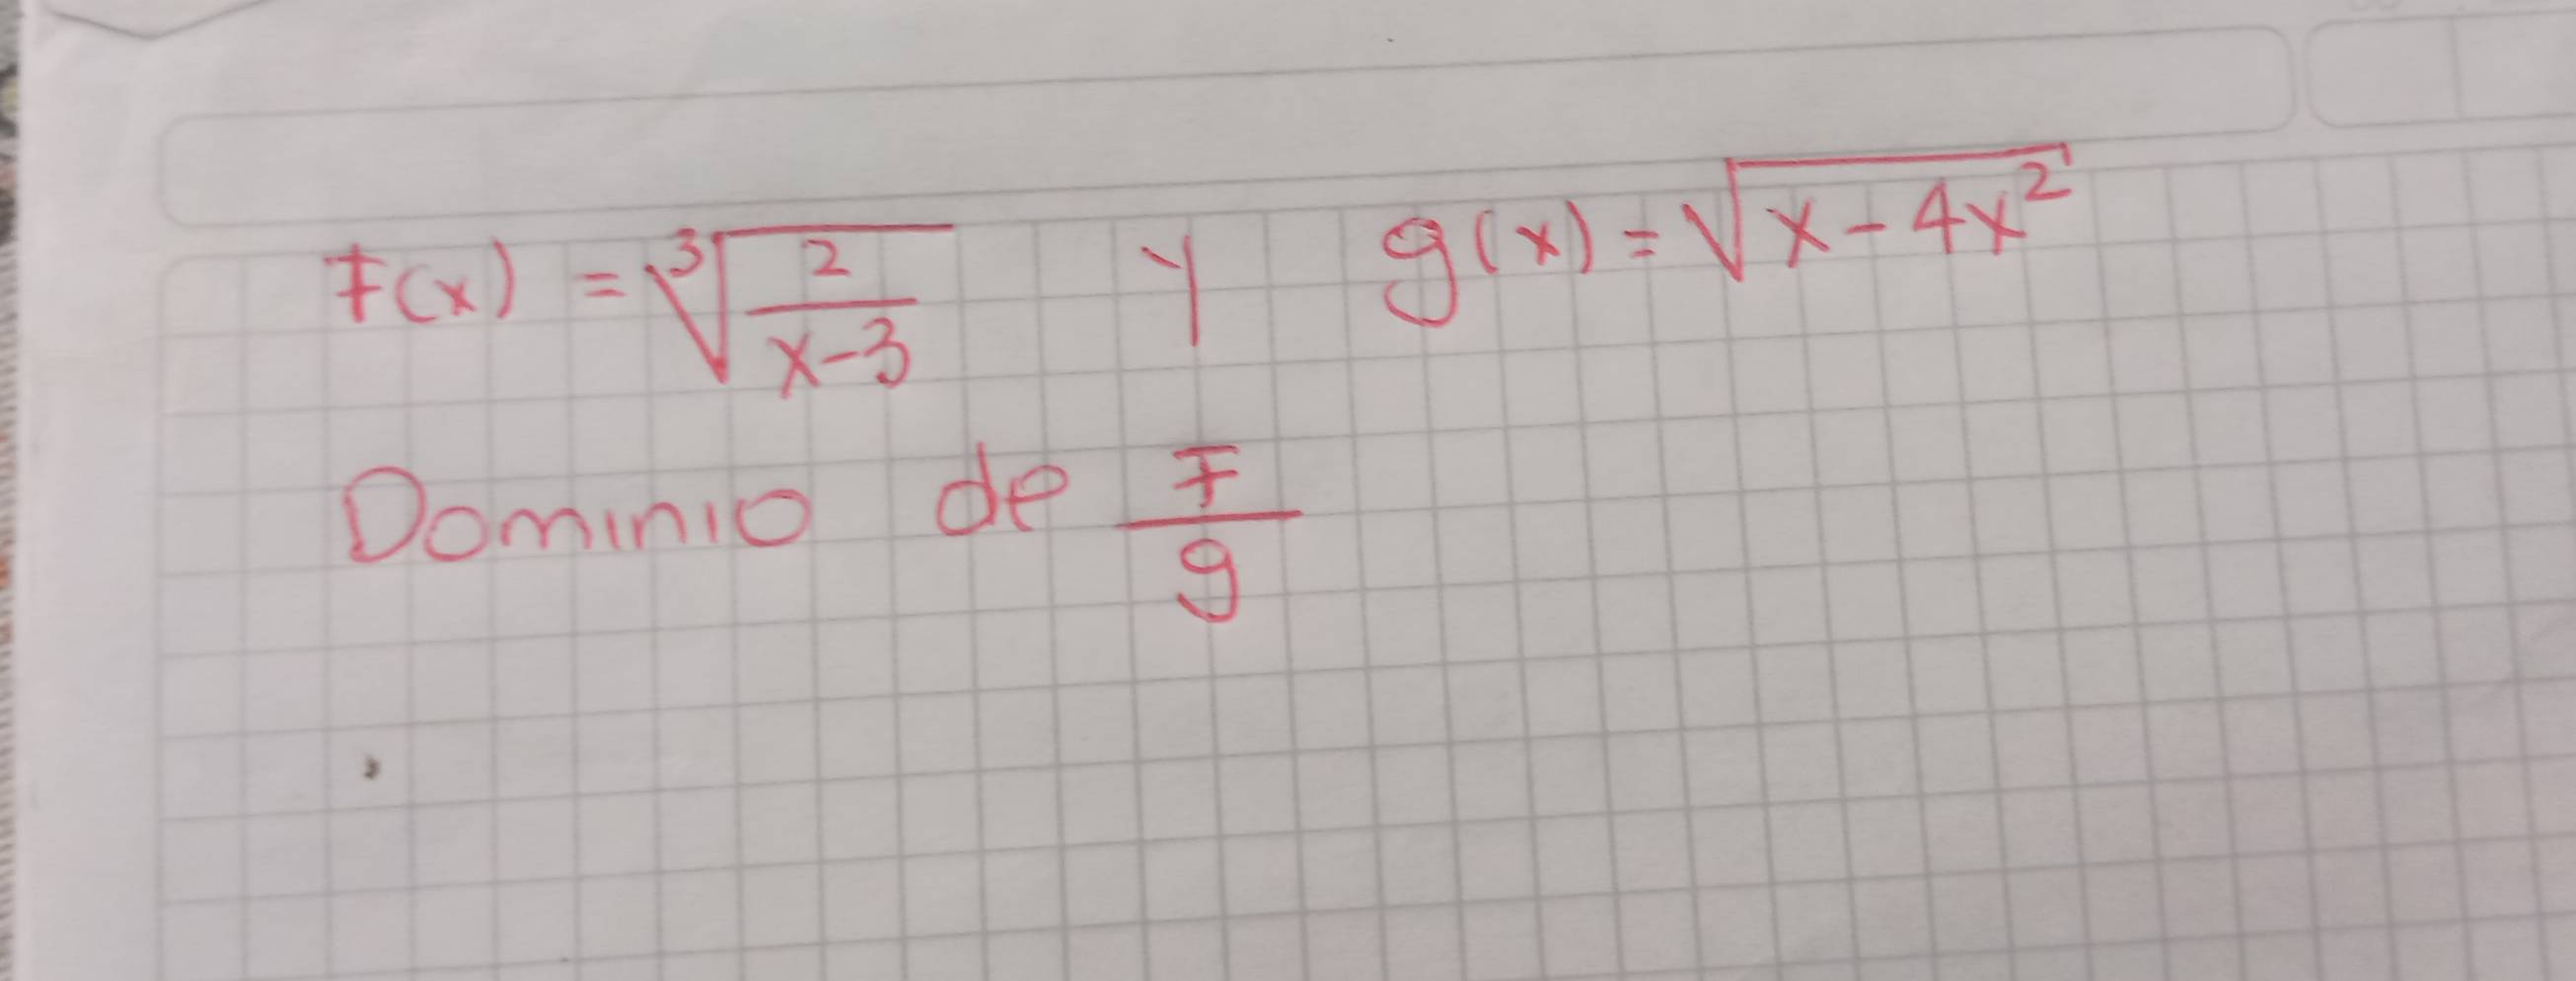 F(x) = ∛(2/(x-3)) y g(x) = √(x-4x²)
Dominio de F/g